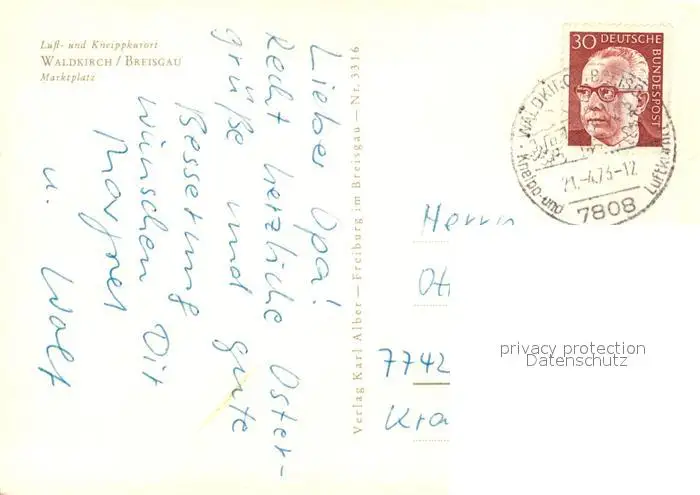 Luft- und Kneippkurort
WALDKIRCH / BREISGAU
Marktplatz
Lieber Opa!
Recht herzliche Oster-
grüße und gute
Besserung
wünschen Dir
Margret
u. Wolf
Verlag Karl Alber — Freiburg im Breisgau — Nr. 3316
30 DEUTSCHE
BUNDESPOST
WALDKIRCH
Kneipp- und Luftkurort
21.-4.73-12
7808
Herrn
7742
privacy protection
Datenschutz